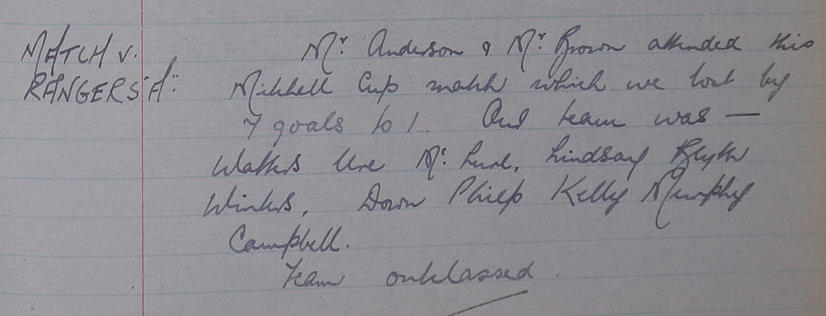 MATCH v. Mr Anderson & Mr Brown attended this
RANGERS "A": Mitchell Cup match which we lost by
7 goals to 1. Our team was —
Walters Ure Lindsay Blyth
Winters, Down Philp Kelly Murphy
Campbell.
Team outclassed.